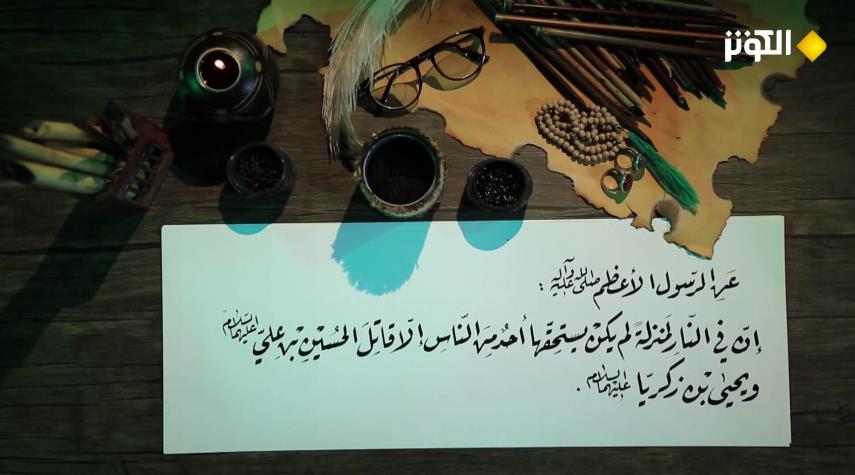 الكوثر
عن الرسول الأعظم صلى الله عليه وآله :
إنّ في النّار لمنزلةً لم يكن يستحقّها أحدٌ من النّاس إلّا قاتل الحُسَيْن بن عليّ عليهما السلام
ويحيى بن زكريّا عليهما السلام .